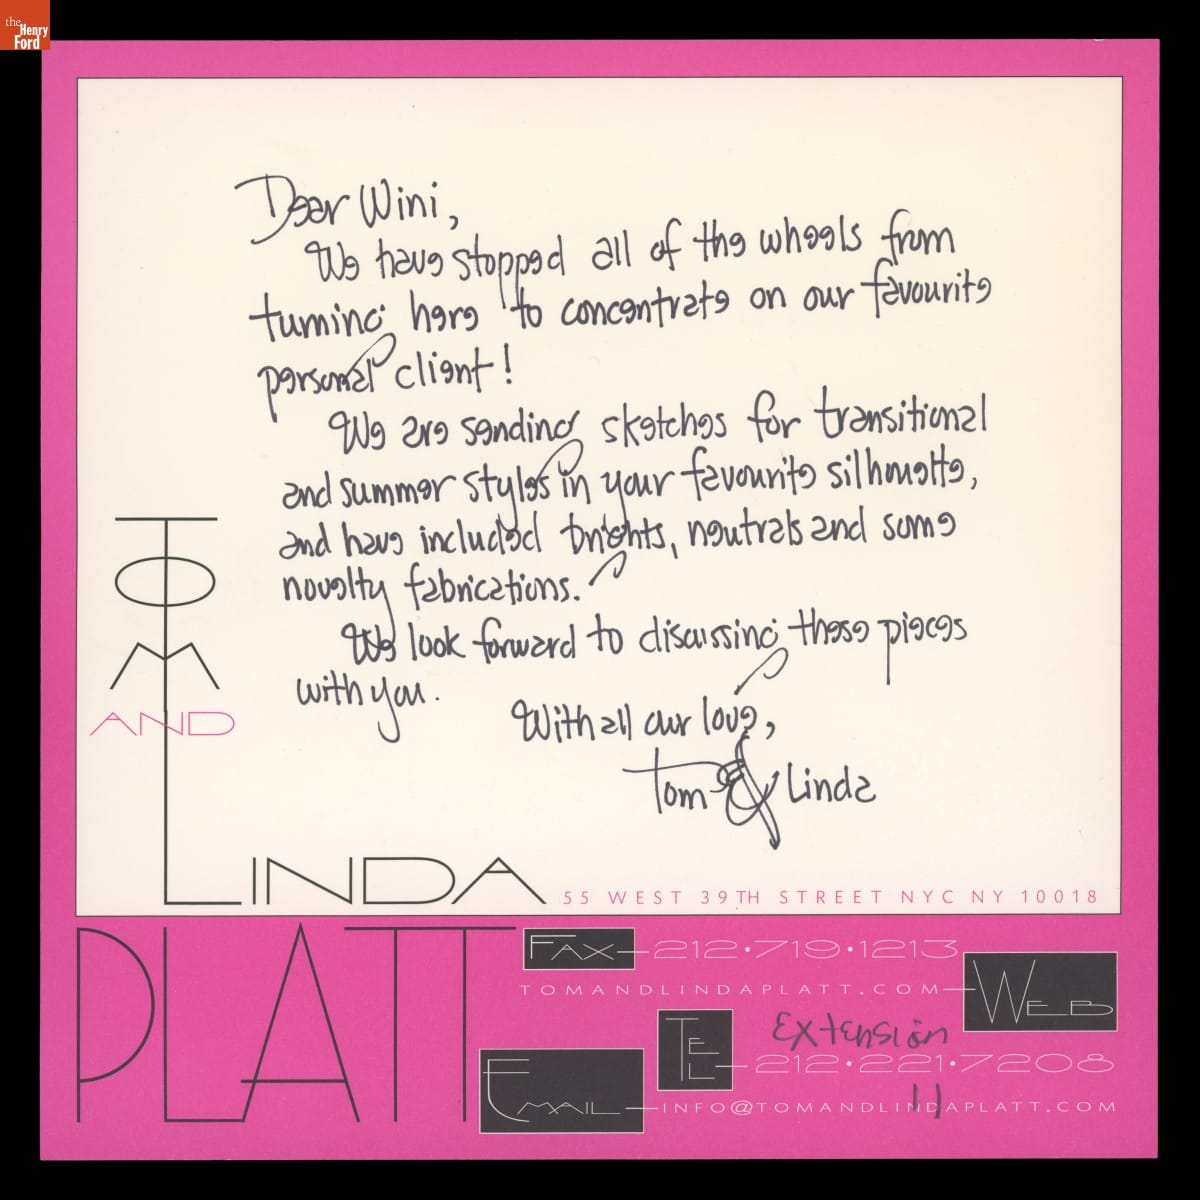 the
Henry
Ford
Dear Wini,
We have stopped all of the wheels from
turning here to concentrate on our favourite
personal client!
We are sending sketches for transitional
and summer styles in your favourite silhouette,
and have included brights, neutrals and some
novelty fabrications.
We look forward to discussing these pieces
with you.
With all our love,
Tom & Linda
TOM
AND
LINDA
55 WEST 39TH STREET NYC NY 10018
PLATT
FAX 212·719·1213
TOMANDLINDAPLATT.COM WEB
Extension
TEL 212·221·7208
11
EMAIL INFO@TOMANDLINDAPLATT.COM